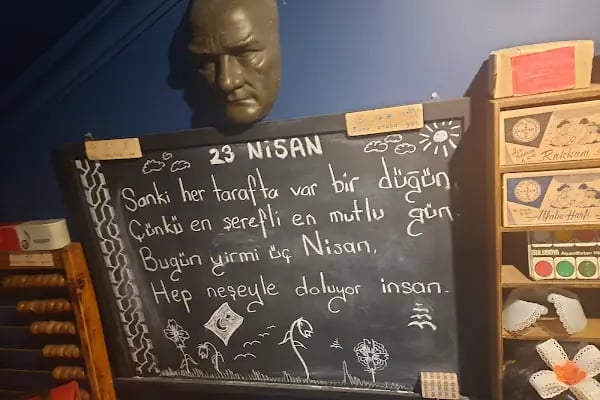 23 NİSAN
Sanki her tarafta var bir düğün.
Çünkü en şerefli en mutlu gün.
Bugün yirmi üç Nisan,
Hep neşeyle doluyor insan.